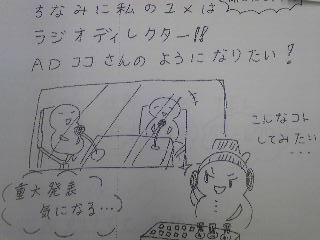 ちなみに私のユメは
ラジオディレクター!!
ADココさんのようになりたい!
こんなコト
してみたい
……
重大発表
気になる…